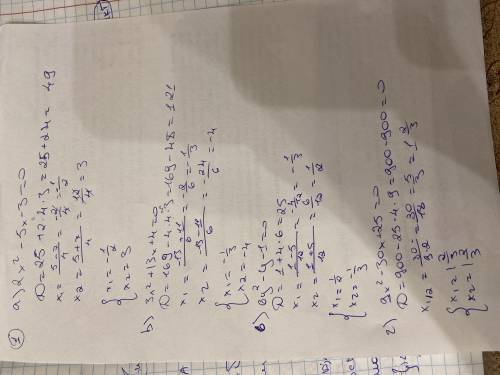 1
а) 2x² - 5x - 3 = 0
D = 25 + 2·4·3 = 25 + 24 = 49
x₁ = (5-7)/4 = -2/4 = -1/2
x₂ = (5+7)/4 = 12/4 = 3
{ x₁ = -1/2
x₂ = 3
б) 3x² + 13x + 4 = 0
D = 169 - 4·4·3 = 169 - 48 = 121
x₁ = (-13+11)/6 = -2/6 = -1/3
x₂ = (-13-11)/6 = -24/6 = -4
{ x₁ = -1/3
x₂ = -4
в) 6y² - y - 1 = 0
D = 1 + 4·6 = 25
x₁ = (1-5)/12 = -4/12 = -1/3
x₂ = (1+5)/12 = 6/12 = 1/2
{ x₁ = 1/2
x₂ = -1/3
г) 9x² - 30x + 25 = 0
D = 900 - 25·4·9 = 900 - 900 = 0
x₁/₂ = 30/9·2 = 30/18 = 5/3 = 1 2/3
{ x₁ = 1 2/3
x₂ = 1 2/3